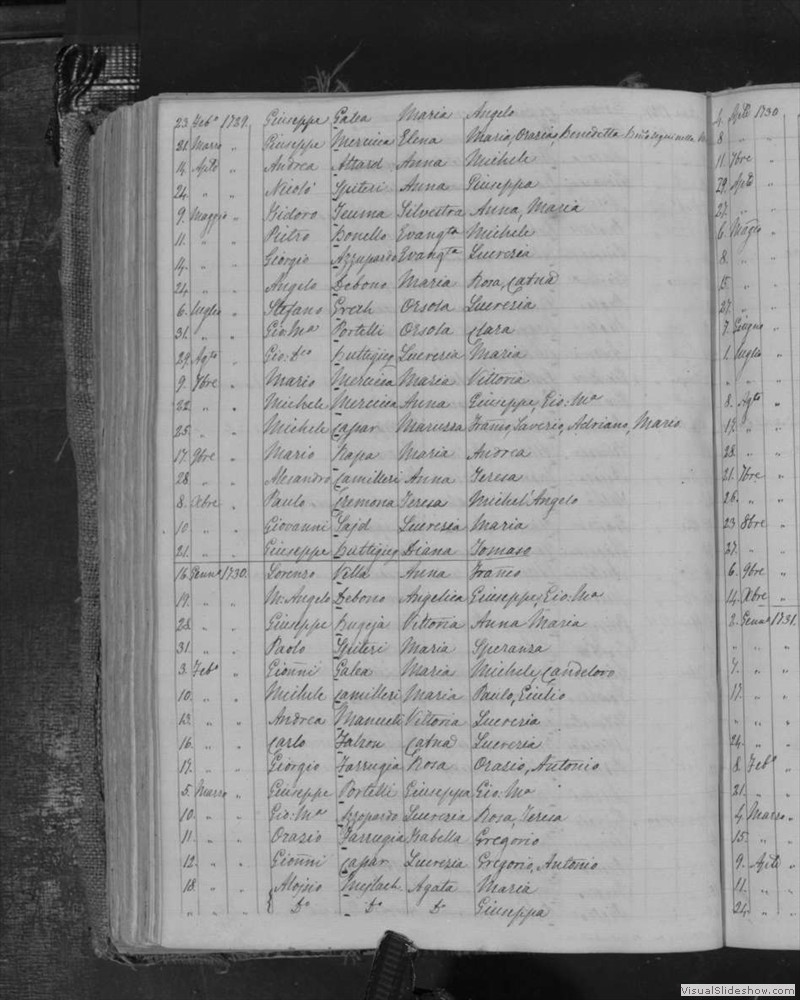 23 Feb° 1729. Giuseppe Galea Maria Angelo
21 Marzo " Giuseppe Mercieca Elena Maria, Orazia, Benedetta
4. Aple " Andrea Attard Anna Michele
24. " " Nicolò Spiteri Anna Giuseppa
9. Maggio " Isidoro Teuma Silvestra Anna, Maria
11. " " Pietro Bonello Evangta Michele
14. " " Giorgio Azzupardo Evangta Lucrezia
24. " " Angelo Debono Maria Rosa, Catna
6. Luglio " Stefano Grech Orsola Lucrezia
31. " " Gio: Ma Portelli Orsola Clara
29. Agto " Gio: Dco Buttigieg Lucrezia Maria
9. 7bre " Mario Mercieca Maria Vittoria
22. " " Michele Mercieca Anna Giuseppe, Gio: Ma
25. " " Michele Capar Maruzza Franco, Saverio, Adriano, Mario
17. 9bre " Mario Rapa Maria Andrea
28. " " Alesandro Camilleri Anna Teresa
8. Xbre " Paulo Cremona Teresa Michel'Angelo
10. " " Giovanni Sajd Lucrezia Maria
21. " " Giuseppe Buttigieg Diana Tomaso
16. Genno 1730. Lorenzo Vella Anna Franco
19. " " M: Angelo Debono Angelica Giuseppe, Gio: Ma
28. " " Giuseppe Bugeja Vittoria Anna Maria
31. " " Paolo Spiteri Maria Speranza
3. Feb° " Gionni Galea Maria Michele, Candeloro
10. " " Michele Camilleri Maria Paulo, Giulio
13. " " Andrea Manueli Vittoria Lucrezia
16. " " Carlo Falzon Catna Lucrezia
17. " " Giorgio Farrugia Rosa Orazio, Antonio
5. Marzo " Giuseppe Portelli Giuseppa Gio: Ma
10. " " Gio: Ma Azzopardo Lucrezia Rosa, Teresa
11. " " Orazio Farrugia Isabella Gregorio
12. " " Gionni Capar Lucrezia Gregorio, Antonio
18. " " Aloisio Agata Maria
" " " Do Do Do Giuseppa
4. Aple 1730
8. "
11. 7bre "
29. Aple "
27. " "
6. Maggio "
8. " "
15. " "
27. " "
7. Giugno "
1. Luglio "
" " "
8. Agto "
17. " "
28. " "
21. 7bre "
26. " "
23. 8bre "
27. " "
6. 9bre "
14. Xbre "
2. Genno 1731.
" " "
7. " "
17. " "
" " "
24. " "
8. Feb° "
21. " "
4. Marzo "
15. " "
9. Aple "
11. " "
24. " "
VisualSlideshow.com